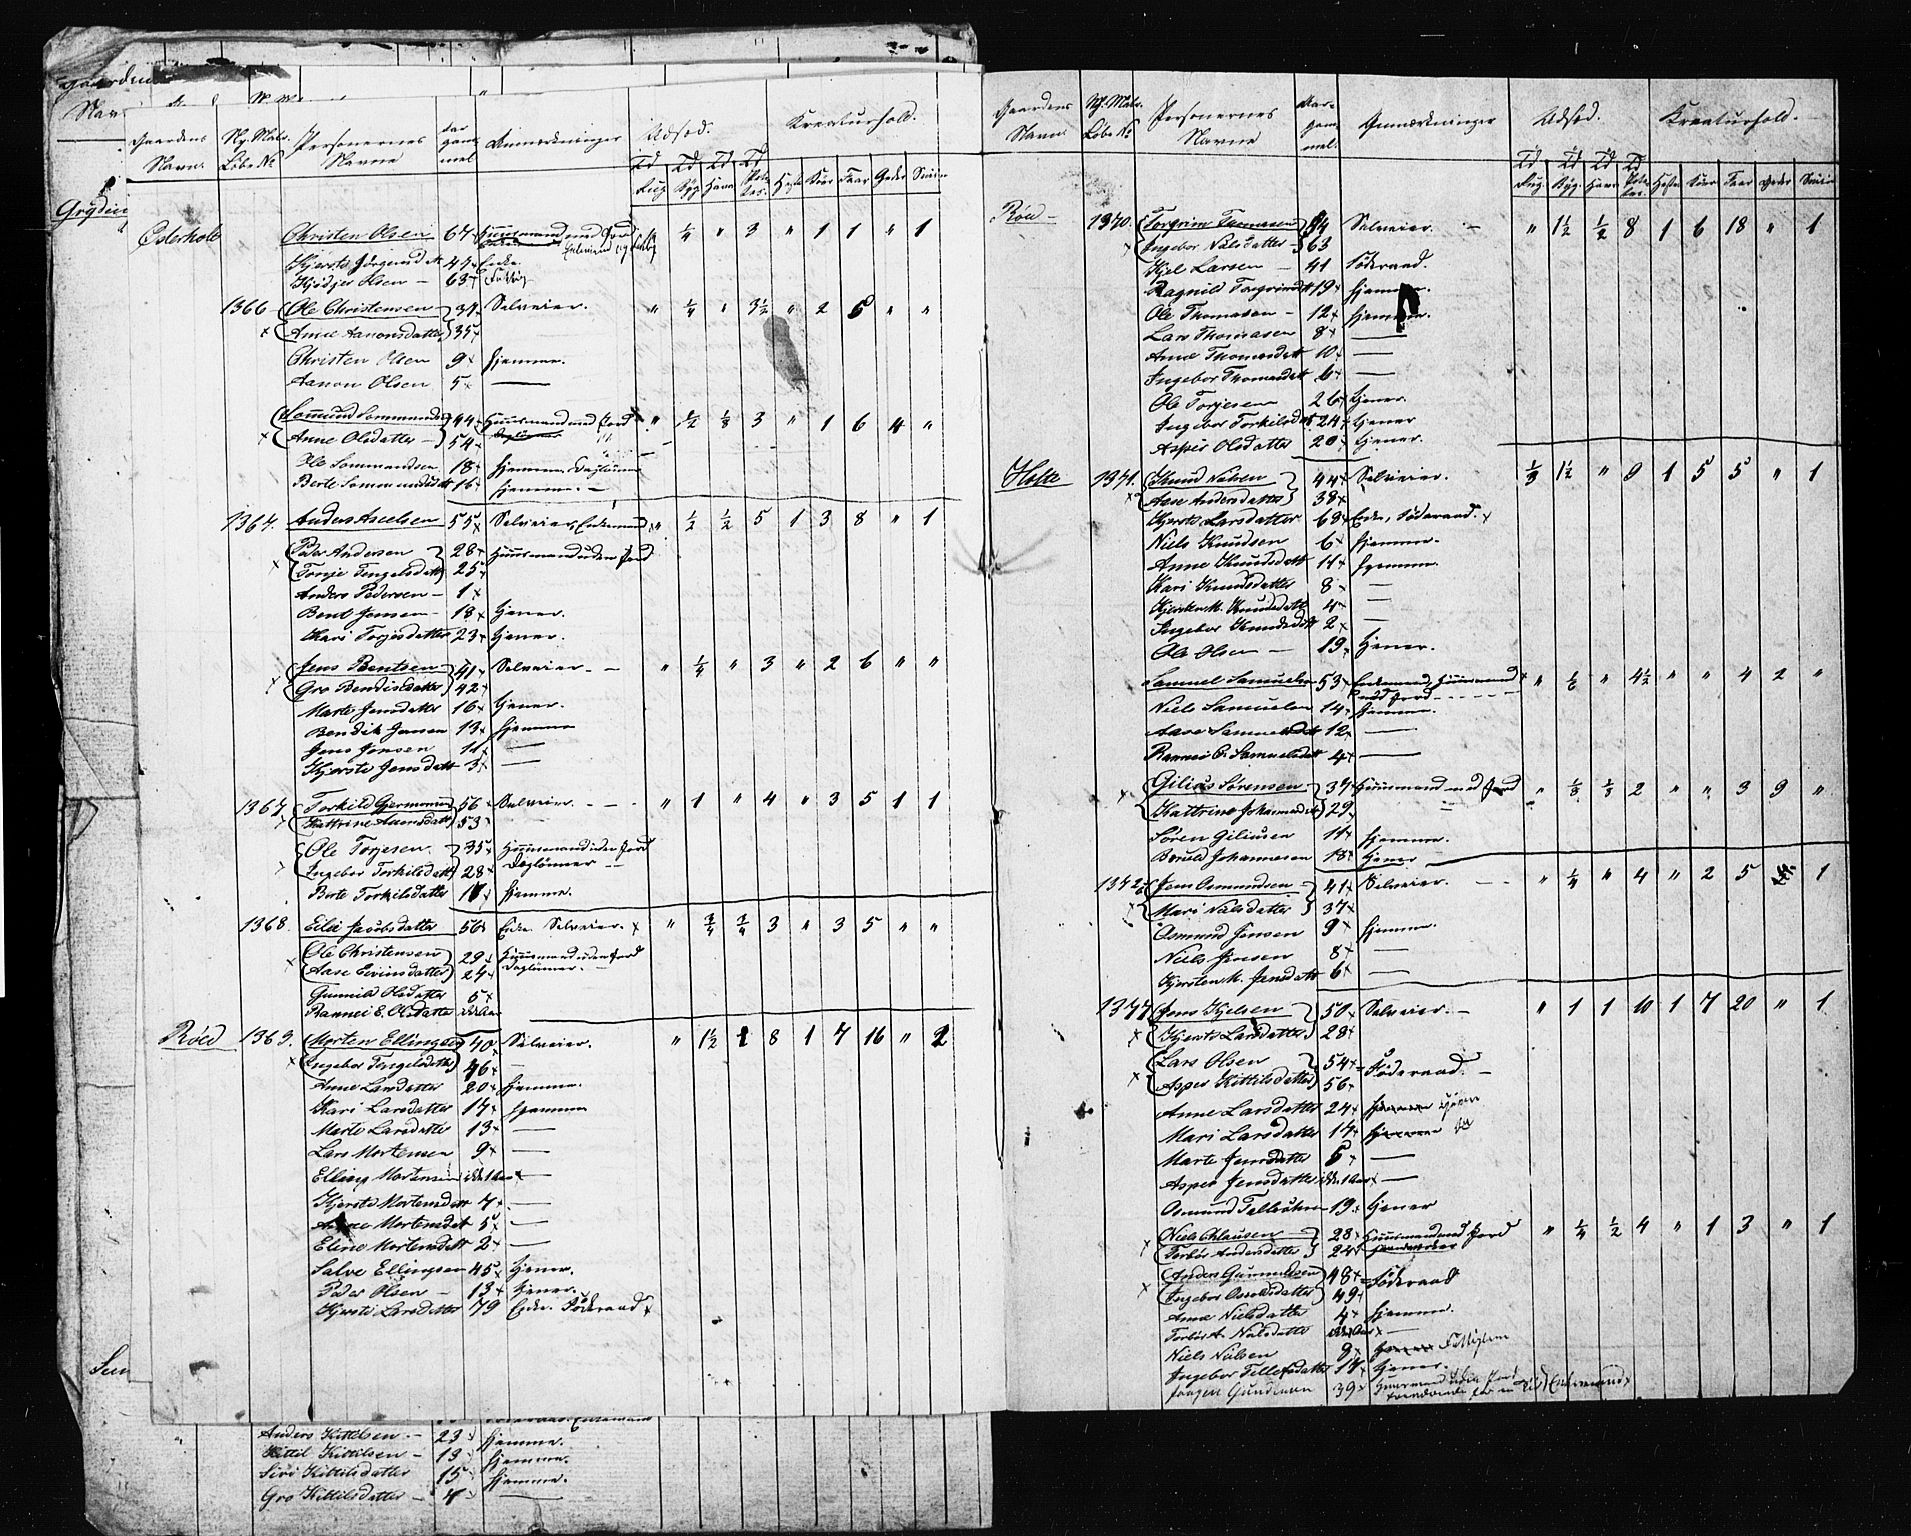 Gaardens Navn. Ny. Matr. Løbe № Personernes Navne Aar gam mel Anmærkninger Udsæd. Kreaturhold.
Td Rug Td Byg Td Havre Td Poteter. Heste Køer Faar Geder Sviin
Østerholt Christen Olsen 67 Huusmand med Jord " 1/4 " 3 " 1 1 " 1
Kjerste Jørgensdtt 44 Enke.
63
1366 Ole Christensen 37 Selveier. " 1/4 " 3½ " 2 5 " "
Anne Aanonsdatter 35
Christen Olsen 9 hjemme.
Aanon Olsen 5 —
44 Huusmand med Jord " 1/2 1/8 3 " 1 6 4 "
Anne Olsdatter 54
Ole 18 hjemme, Daglønner
Berte 16 hjemme.
1367. Anders Axelsen 55 Selveier, Enkemand " 1/2 1/2 5 1 3 8 " 1
Peder Andersen 28 Huusmand uden Jord
Tonje Tengelsdatt 25
Anders Pedersen 1
Bent Jensen 18 tjener.
Kari Torjesdatter 23 tjener.
Jens Bentsen 41 Selveier. " 1/4 " 3 " 2 6 " "
Gro Bendixdatter 42
Marte Jensdatter 16 tjener.
Bendik Jensen 13 hjemme
Jens Jensen 11 —
Kjerste Jensdatt 3 —
1367 Torkild Gjermonsen 56 Selveier. " 1 " 4 " 3 5 1 1
Kattrine 53
Ole Torjesen 35 Huusmand uden Jord
Ingebor Torkilsdatt 28 Daglønner
Berte Torkilsdatter 17 hjemme.
1368. Eilie Jacobsdatter 56 Enke. Selveier. " 3/4 3/4 3 " 3 5 " "
Ole Christensen 29 Huusmand uden Jord
Aase Eivindsdatter 24 Daglønner.
Gunnild Olsdatter 5
Rannei E. Olsdatter
Røed 1369. Morten Ellingsen 40 Selveier. " 1½ 1 8 1 7 16 " 2
Ingebor Tengelsdatter 46
Anne Larsdatter 20 hjemme.
Kari Larsdatter 17 hjemme
Marte Larsdatter 13 —
Lars Mortensen 9 —
Elling Mortensen ikke 1 Aar —
Kjerste Mortensdtt 7 —
Anne Mortensdtt 5 —
Eline Mortensdtt 2 —
Salve Ellingsen 45 tjener.
Peder Olsen 13 tjener.
Kjerste Larsdatter 79 Enke. Føderaad
Anders Kittilsen 23 hjemme.
Kittil Kittilsen 13 hjemme.
Siri Kittilsdatter 15 hjemme.
Gro Kittilsdatter 4 —
Gaardens Navn. Ny. Matr. Løbe № Personernes Navne Aar gam mel. Anmærkninger Udsæd. Kreaturhold.
Td Rug. Td Byg. Td Havre Td Poteter. Heste Køer Faar Geder Sviin
Røed 1370. Torgrim Thomasen 44 Selveier. " 1½ 1/2 8 1 6 18 " 1
Ingebor Nielsdatter 63
Kjel Larsen 41 Føderaad.
Ragnild Torgrimsdtt 19 hjemme.
Ole Thomasen 12 hjemme.
Lars Thomasen 8 —
Anne Thomasdatt 10 —
Ingebor Thomasdatt 6 —
Ole Torjesen 26 tjener.
Ingebor Torkilsdtt 24 tjener
Asper Olsdatter 20 tjener.
Holte 1371. Knud Nilsen 44 Selveier. 1/8 1½ " 9 1 5 5 " 1
Aase Andersdatter 38
Kjerste Larsdatter 68 Enke, Føderaad.
Niels Knudsen 6 hjemme.
Anne Knudsdatt 11 hjemme.
Kari Knudsdatter 8 —
Kjersten M. Knudsdatt 4 —
Ingebor Knudsdatt 2 —
Ole Olsen 19 tjener.
Samuel Samuelsen 53 Enkemand, Huusmand med Jord " 1/6 " 4½ " " 4 2 "
Niels Samuelsen 14 hjemme.
Aase Samuelsdatt 12 —
Rannei O. Samuelsdatt 4 —
Gilius Sørensen 37 Huusmand med Jord " 1/8 1/8 2 " " 3 9 "
Kattrine Johannesdtt 29
Søren Giliusen 11 hjemme.
Johannesen 18 tjener
1372. Jens Osmundsen 41 Selveier. " 1/4 " 4 " 2 5 1
Mari Nilsdatter 37
Osmund Jensen 9 hjemme.
Niels Jensen 8 —
Kjersten M. Jensdatt 6 —
1377 Jens Kjelsen 50 Selveier. " 1 1 10 1 7 20 " 1
Kjerste Larsdatter 28
Lars Olsen 54 Føderaad.
Asper Kittilsdatter 56
Anne Larsdatter 24 hjemme
Mari Larsdatter 17 hjemme
Marte Jensdatter 5 —
Asper Jensdatter ikke 1 Aar —
Osmund 19 tjener
Niels Clausen 28 Huusmand med Jord " 1/4 1/2 4 " 1 3 " 1
Torbør Andersdatter 24
Anders Gunnuldsen 48 Føderaad
Ingebor 49
Anne Nielsdatter 4 hjemme.
Torbør A. Nilsdatter —
Niels Nielsen 8
Ingebor Tellefsdatter 17 tjener.
Jørgen Gundersen 39 Huusmand uden Jord